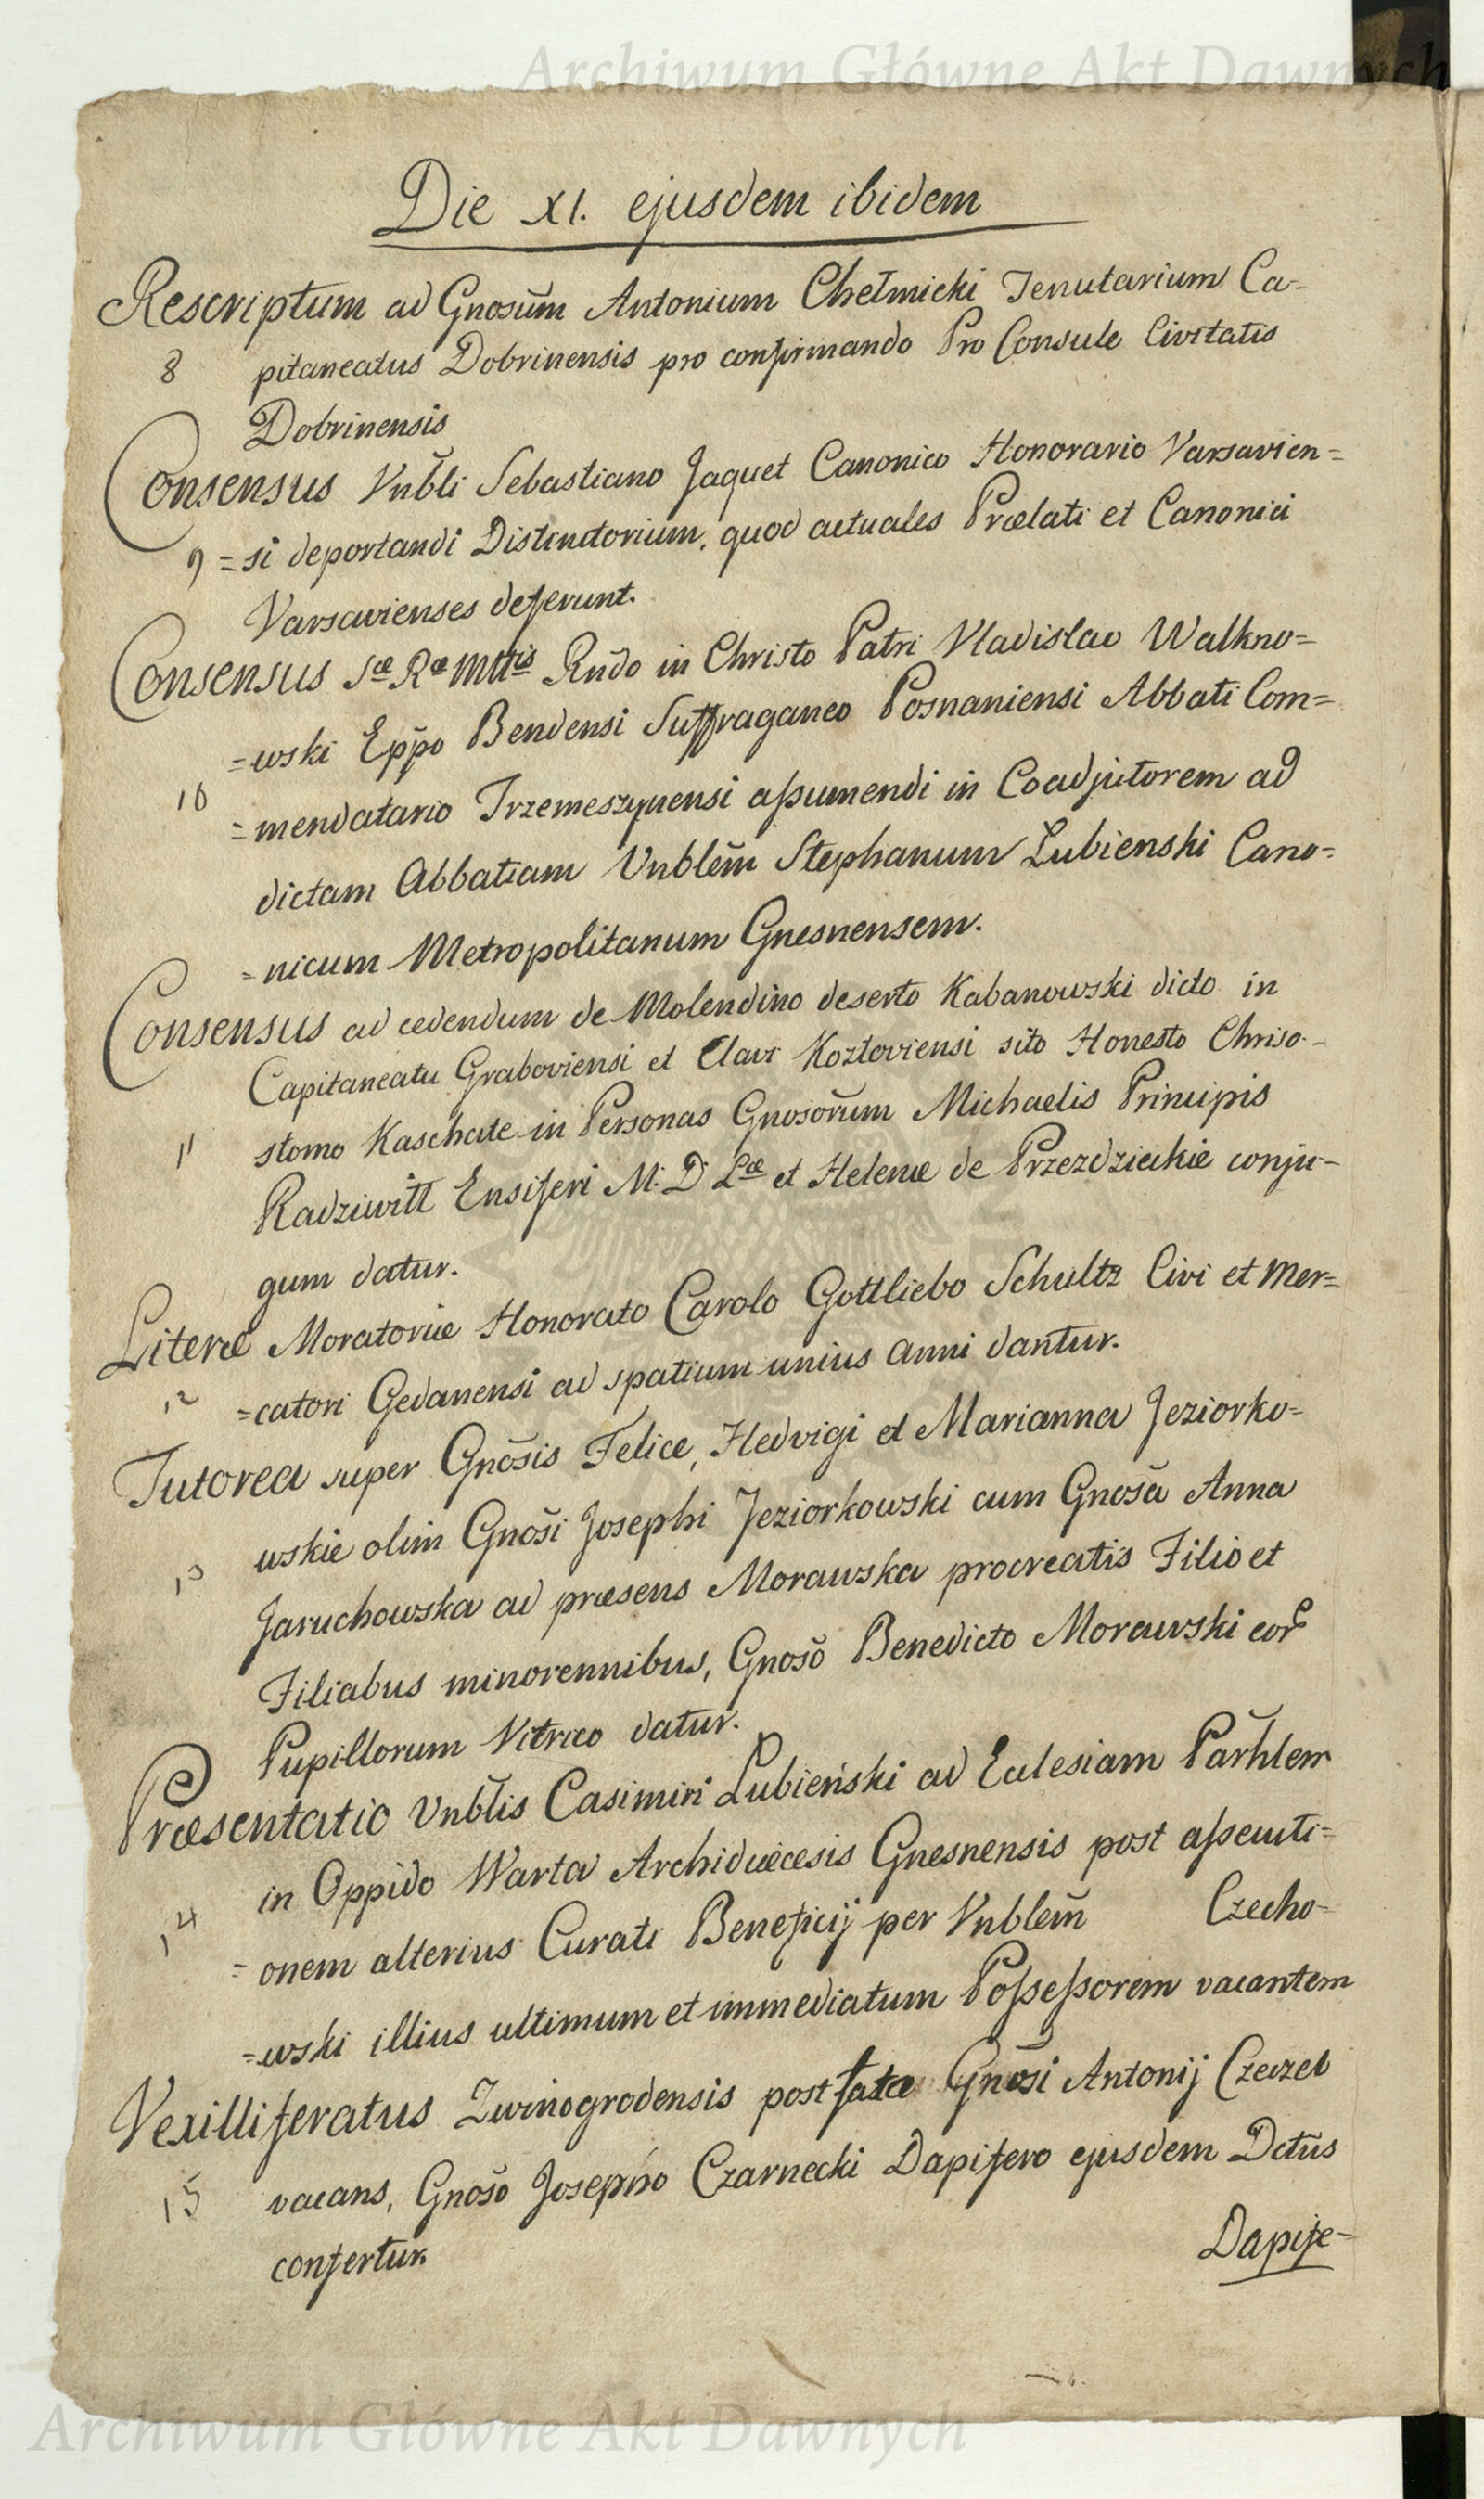 Archiwum Główne Akt Dawnych
Die XI. ejusdem ibidem
Rescriptum ad Gnosum̃ Antonium Chełmicki Tenutarium Ca-
8 pitaneatus Dobrinensis pro confirmando Pro Consule Civitatis
Dobrinensis
Consensus Vnbli Sebastiano Jaquet Canonico Honorario Varsavien=
9 =si deportandi Distinctorium, quod actuales Prælati et Canonici
Varsavienses deferunt.
Consensus Sæ Ræ Mttis Rndo in Christo Patri Vladislao Walkno=
=wski Eppo Bendensi Suffraganeo Posnaniensi Abbati Com=
10 =mendatario Trzemesznensi aſsumendi in Coadjutorem ad
dictam Abbatiam Vnblem̃ Stephanum Łubienski Cano=
=nicum Metropolitanum Gnesnensem.
Consensus ad cedendum de Molendino deserto Kabanowski dicto in
Capitaneatu Graboviensi et Clavi Kozłoviensi sito Honesto Chriso-
11 stomo Kaschate in Personas Gnosorum̃ Michaelis Principis
Radziwiłł Ensiferi M. D. Læ et Helenæ de Przezdzieckie conju-
gum datur.
Literæ Moratoriæ Honorato Carolo Gottliebo Schultz Civi et Mer=
12 =catori Gedanensi ad spatium unius anni dantur.
Tutorea super Gnosis̃ Felice, Hedvigi et Marianna Jeziorko=
wskie olim Gnosĩ Josephi Jeziorkowski cum Gnosã Anna
13 Jaruchowska ad præsens Morawska procreatis Filio et
Filiabus minorennibus, Gnosõ Benedicto Morawski eor
Pupillorum Vitrico datur.
Præsentatio Vnblis̃ Casimiri Łubieński ad Eclesiam Parhlem
in Oppido Warta Archidiœcesis Gnesnensis post aſsecuti=
14 =onem alterius Curati Beneficij per Vnblem̃ Czecho-
=wski illius ultimum et immediatum Poſseſsorem vacantem
Vexilliferatus Zwinogrodensis post fata Gnosĩ Antonij Czeczel
15 vacans, Gnosõ Josepho Czarnecki Dapifero ejusdem Dctus̃
confertur.
Dapife-
Archiwum Główne Akt Dawnych